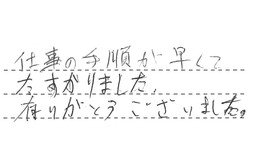 仕事の手順が早くて
たすかりました、
有りがとうございました。